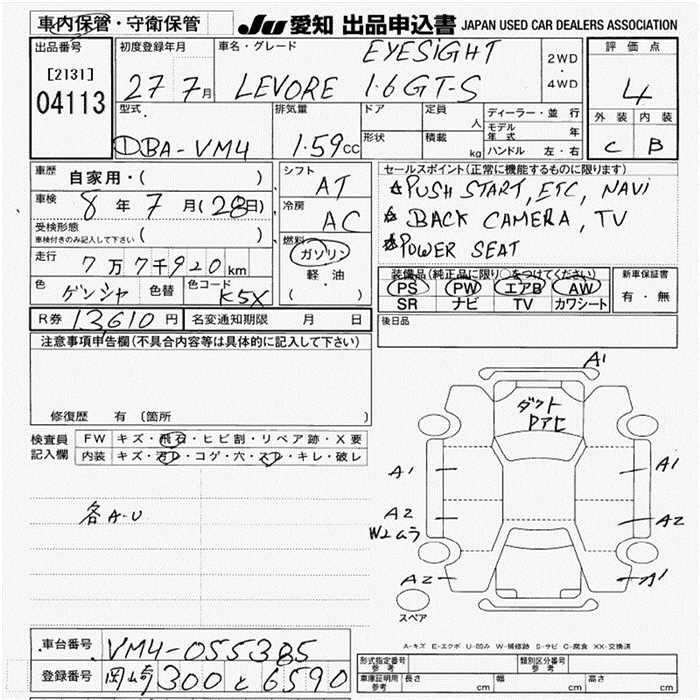 車内保管・守衛保管
JU 愛知 出品申込書 JAPAN USED CAR DEALERS ASSOCIATION
出品番号
[2131]
04113
初度登録年月
27 7月
車名・グレード
EYESIGHT
LEVORG 1.6GT-S
2WD
・
4WD
評価点
4
外装 内装
C B
型式
DBA-VM4
排気量
1.59cc
ドア
形状
定員
人
積載
kg
ディーラー・並行
モデル年式 年
ハンドル 左・右
車歴 自家用・( )
車検 8年7月(28日)
受検形態
車検付きのみ記入して下さい ( )
走行 7万7千920km
色 ゲンシャ 色替 色コード K5X
シフト AT
冷房 AC
燃料
ガソリン
軽・油
( )
セールスポイント(正常に機能するものに限ります)
☆PUSH START, ETC, NAVI
☆BACK CAMERA, TV
☆POWER SEAT
装備品(純正品に限り○をつけてください)
PS PW エアB AW
SR ナビ TV カワシート
新車保証書
有・無
R券 13,610円 名変通知期限 月 日
後日品
注意事項申告欄(不具合内容等は具体的に記入して下さい)
修復歴 有 〔箇所 〕
検査員記入欄
FW キズ・飛石・ヒビ割・リペア跡・X要
内装 キズ・汚レ・コゲ・穴・スレ・キレ・破レ
各A-U
A1
ダクト
Pアヒ
A1 A1
A2 A2
W2ムラ
A2 A1
スペア
A-キズ E-エクボ U-凹み W-補修跡 S-サビ C-腐食 XX-交換済
車台番号 VM4-055385
登録番号 岡崎 300 と 6590
形式指定番号 参考 類別区分番号 参考
車庫証明用 参考 長さ cm 幅 cm 高さ cm